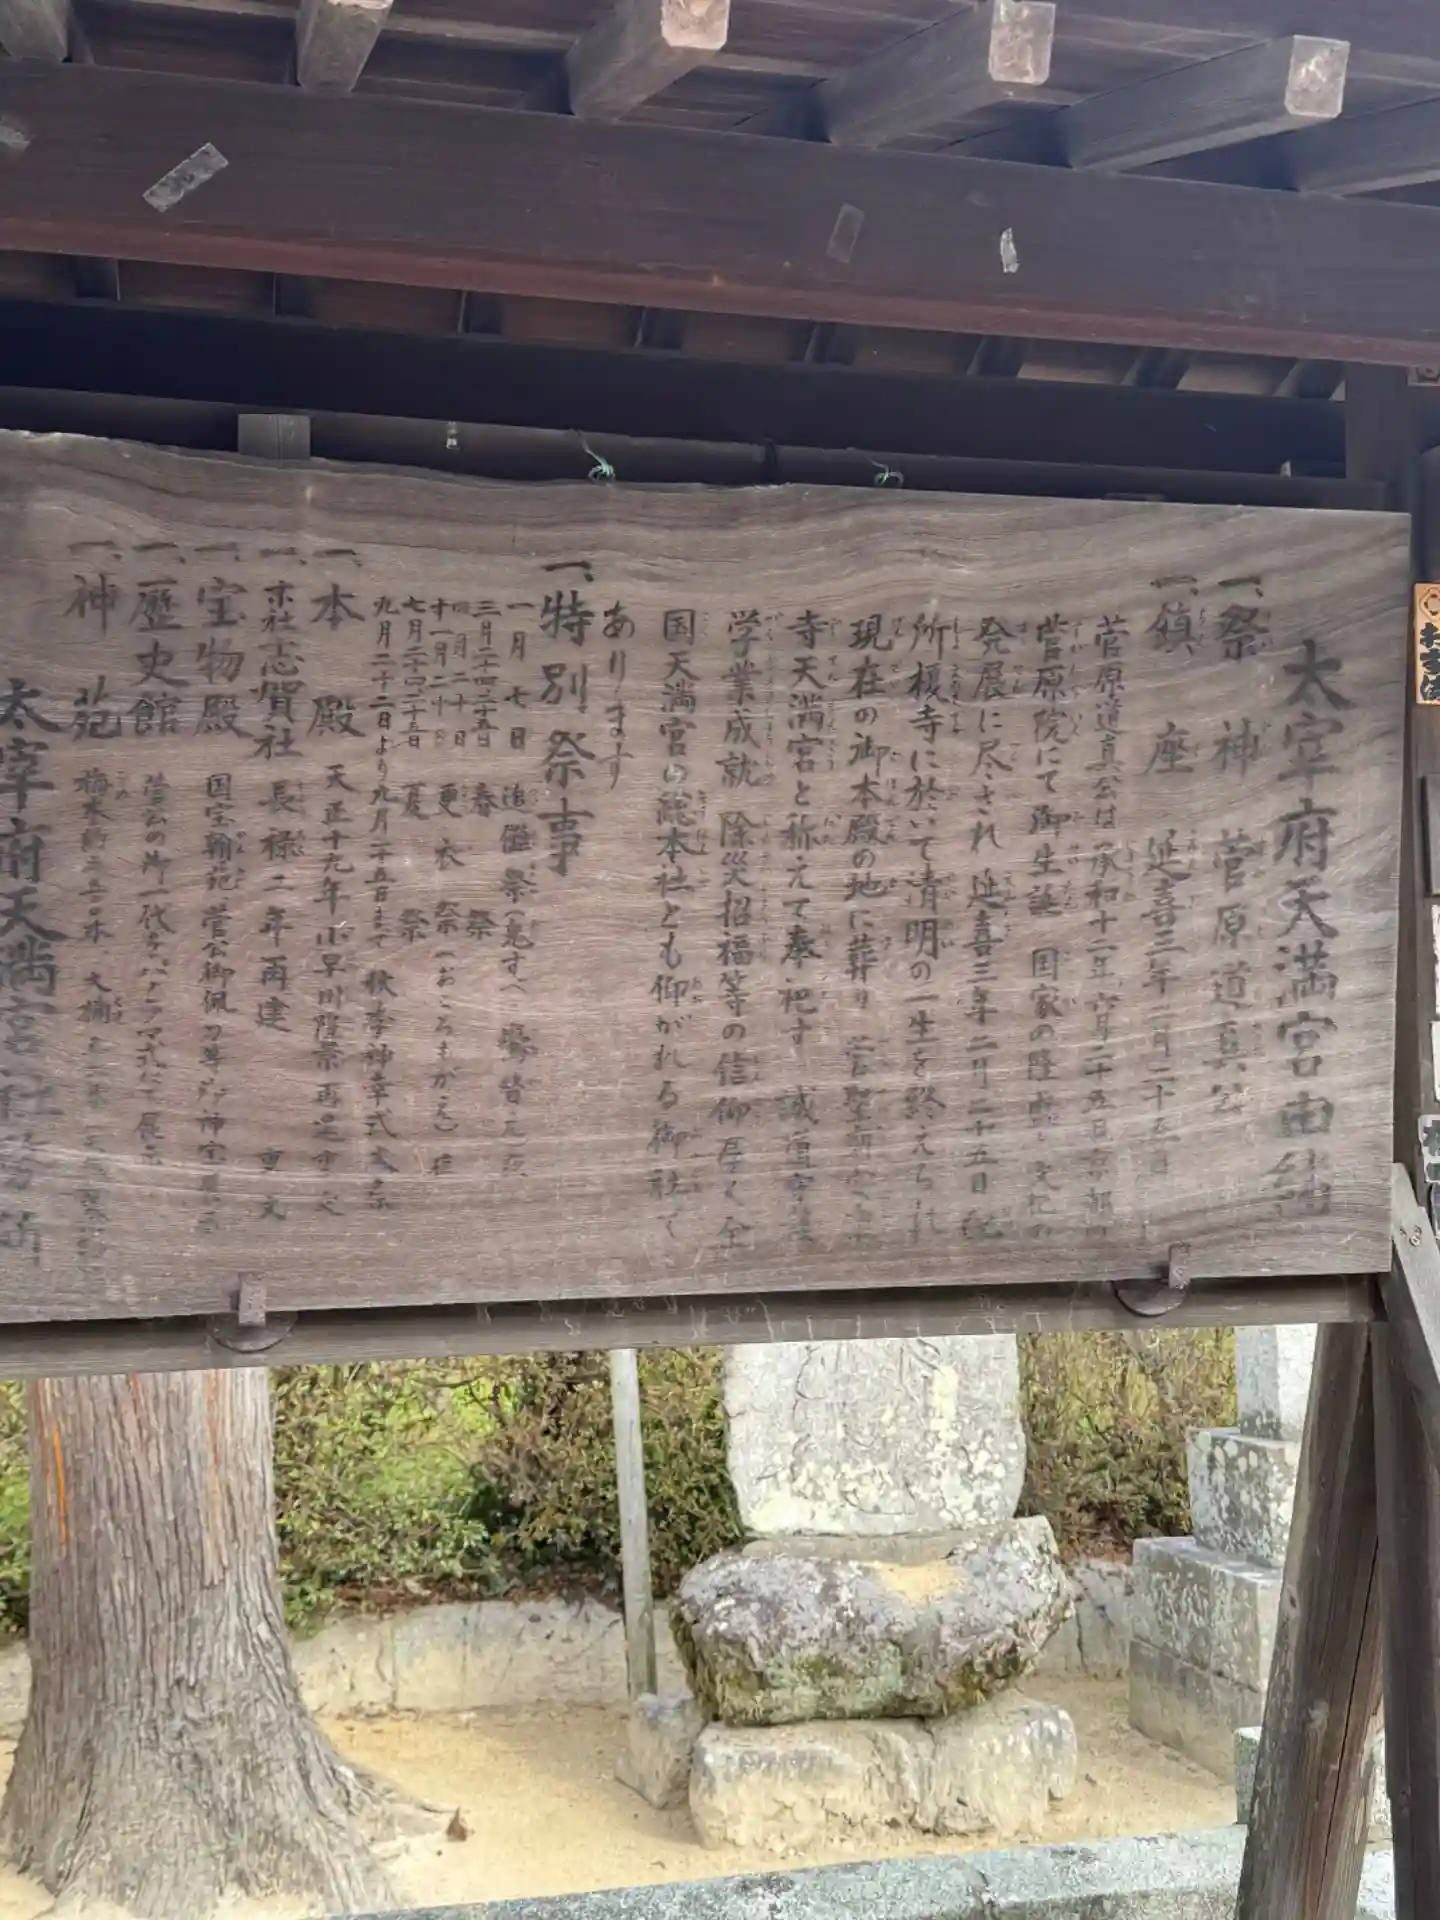 太宰府天満宮由緒
一、祭神 菅原道真公
一、鎮座 延喜三年二月二十五日
菅原道真公は承和十二年六月二十五日京都の
菅原院にて御生誕 国家の隆盛と文化の
発展に尽され 延喜三年二月二十五日 配
所榎寺に於いて清明の一生を終えられ
現在の御本殿の地に葬り 菅聖廟
寺天満宮と称えて奉祀す 誠
学業成就 除災招福等の信仰厚く全
国天満宮の総本社とも仰がれる御社で
あります
一、特別祭事
一月七日 追儺祭(鬼すべ 鷽替え)
三月二十四二十五日 春祭
四月二十日
十一月二十日 更衣祭(おころもがえ)
七月二十四二十五日 夏祭
九月二十二日より九月二十五日まで 秋季神幸式大祭
一、本殿 天正十九年小早川隆景再建 重文
一、末社志賀社 長禄二年再建 重文
一、宝物殿 国宝翰苑 菅公御佩刀等 神宝
一、歴史館 菅公の御一代をパノラマ式にて展示
一、神苑 梅木 大樟
太宰府天満宮社務所